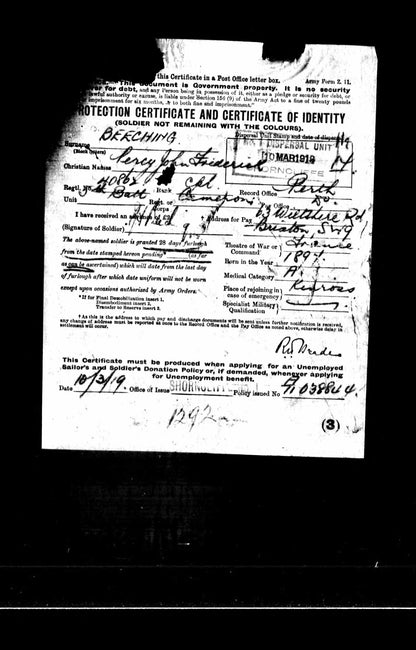 this Certificate in a Post Office letter box. Army Form Z. 11.
This document is Government property. It is no security
for debt, and any Person being in possession of it, either as a pledge or security for debt, or
lawful authority or excuse, is liable under Section 156 (9) of the Army Act to a fine of twenty pounds
imprisonment for six months, or to both fine and imprisonment."
PROTECTION CERTIFICATE AND CERTIFICATE OF IDENTITY
(SOLDIER NOT REMAINING WITH THE COLOURS).
Dispersal Unit Stamp and date of dispersal
Surname BEECHING
(Block letters)
DISPERSAL UNIT
10 MAR 1919
SHORNCLIFFE
Christian Names Percy John Frederick
Regtl. No. 40862 Rank Cpl Record Office Perth
Unit Batt Regt. or Corps Cameron Pay Office Do.
I have received an advance of £2. Address for Pay 63 Wiltshire Rd
Brixton SW9
(Signature of Soldier)
The above-named soldier is granted 28 days' furlough
from the date stamped hereon pending (as far
as can be ascertained) which will date from the last day
of furlough after which date uniform will not be worn
except upon occasions authorized by Army Orders.
Theatre of War or Command France
Born in the Year 1897.
Medical Category A.
Place of rejoining in case of emergency Kinross
Specialist Military Qualification
* If for Final Demobilization insert 1.
Disembodiment insert 2.
Transfer to Reserve insert 3.
† As this is the address to which pay and discharge documents will be sent unless further notification is received,
any change of address must be reported at once to the Record Office and the Pay Office as noted above, otherwise delay in
settlement will occur.
This Certificate must be produced when applying for an Unemployed
Sailor's and Soldier's Donation Policy or, if demanded, whenever applying
for Unemployment benefit.
Date 10/3/19. Office of Issue SHORNCLIFFE Policy issued No 038844
1292
(3)